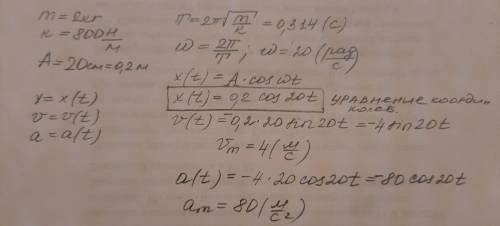 m = 2кг
к = 800 Н/м
A = 20см = 0,2м
x = x(t)
v = v(t)
a = a(t)
T = 2π√(m/к) = 0,314 (с)
ω = 2π/T ; ω = 20 (рад/с)
x(t) = A · cos ωt
x(t) = 0,2 cos 20t уравнение коорди
v(t) = -0,2 · 20 sin 20t = -4 sin 20t
vm = 4 (м/с)
a(t) = -4 · 20 cos 20t = -80 cos 20t
am = 80 (м/с²)